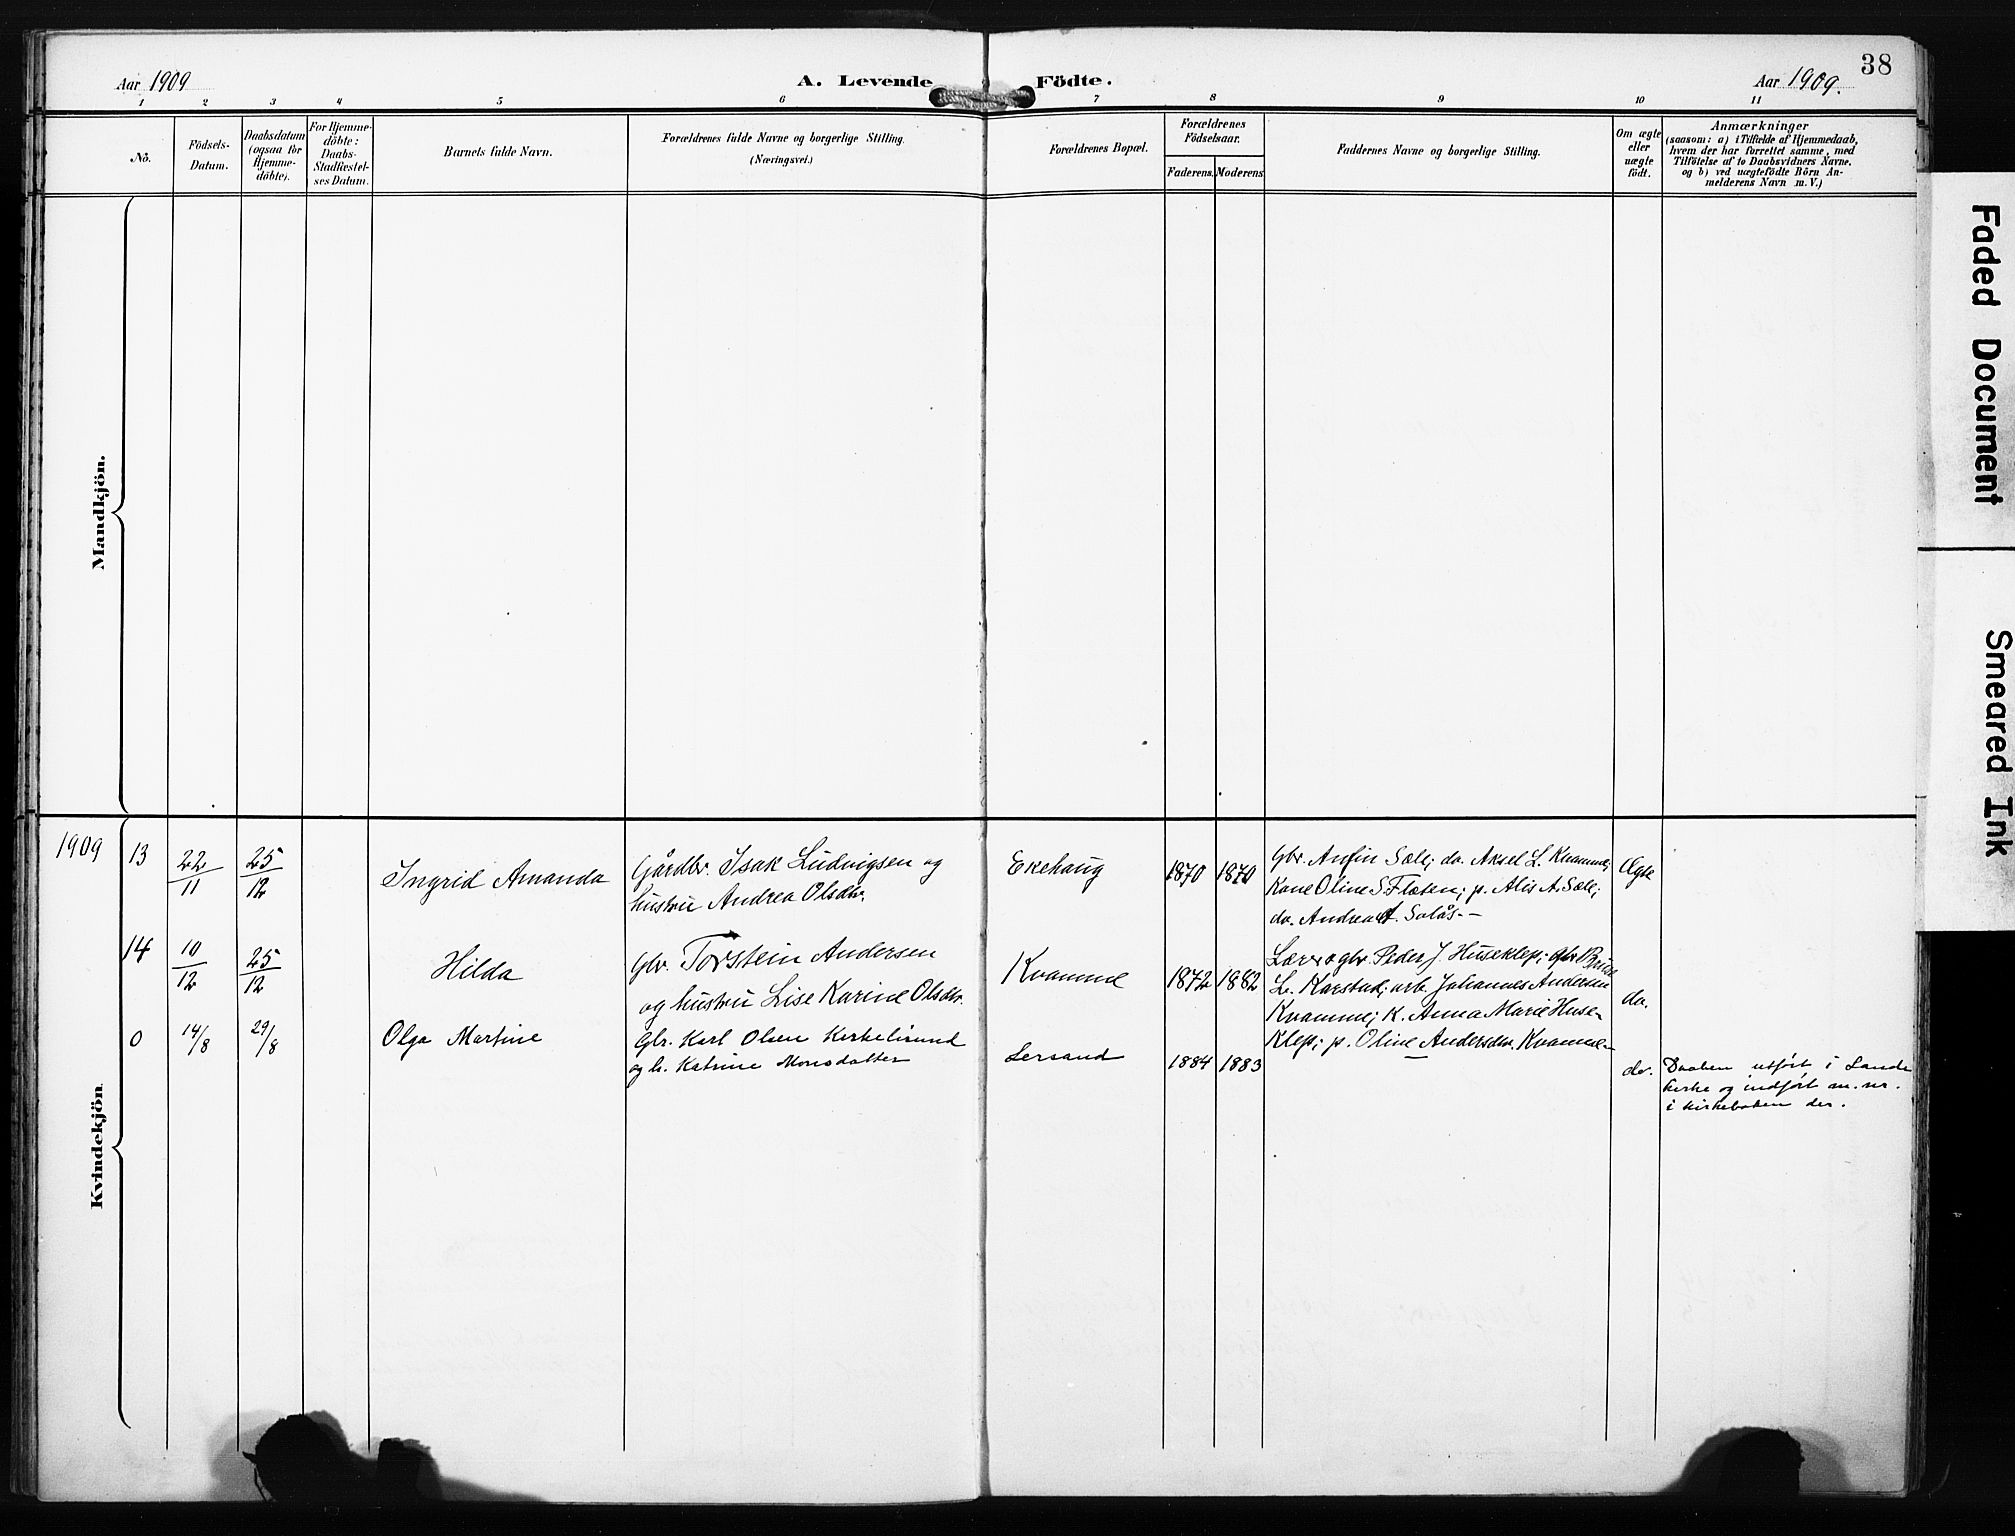 Aar 1909
A. Levende Födte.
Aar 1909.
38
1 2 3 4 5 6 7 8 9 10 11
No.
Födsels-
Datum.
Daabsdatum
(ogsaa for
Hjemme-
döbte).
For Hjemme-
döbte:
Daabs-
Stadfæstel-
ses Datum.
Barnets fulde Navn.
Forældrenes fulde Navne og borgerlige Stilling.
(Næringsvei.)
Forældrenes Bopæl.
Forældrenes
Födselsaar.
Faderens. Moderens
Faddernes Navne og borgerlige Stilling.
Om ægte
eller
uægte
födt.
Anmærkninger
(saasom: a) i Tilfælde af Hjemmedaab,
hvem der har forrettet samme, med
Tilföielse af to Daabsvidners Navne.
og b) ved uægtefödte Börn An-
melderens Navn m. V.)
Mandkjön.
Kvindekjön
1909
13
22/11
25/12
Ingrid Amanda
Gårdbr. Isak Ludvigsen og
hustru Andrea Olsdtr.
Ekehaug
1870
1870
Gbr. Anfin Sæle; do. Aksel L. Kvamme;
Kone Oline S. Flöten; p. Alis A. Sæle;
do. Andrea A. Solås.-
Ægte
14
10/12
25/12
Hilda
Gbr. Torstein Andersen
og hustru Lise Karine Olsdtr.
Kvamme
1872
1882
Lærer o gbr. Peder J. Huseklep; gbr.
L. Karstad; arb. Johannes Andersen
Kvamme; K. Anna Marie Huse-
klep; p. Oline Andersdtr. Kvamme-
do.
0
14/8
29/8
Olga Martine
Gbr. Karl Olsen
og h. Katrine Monsdatter
Lersand
1884
1883
do.
Daaben utført i Sande
kirke og indført m. nr.
i kirkeboken der.
Faded Document
Smeared Ink